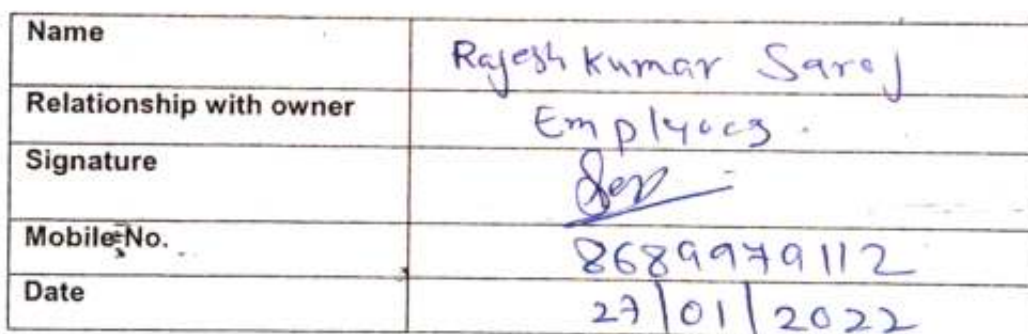 Name Rajesh Kumar Saroj
Relationship with owner Emplyoes.
Signature
Mobile No. 8689979112
Date 27/01/2022